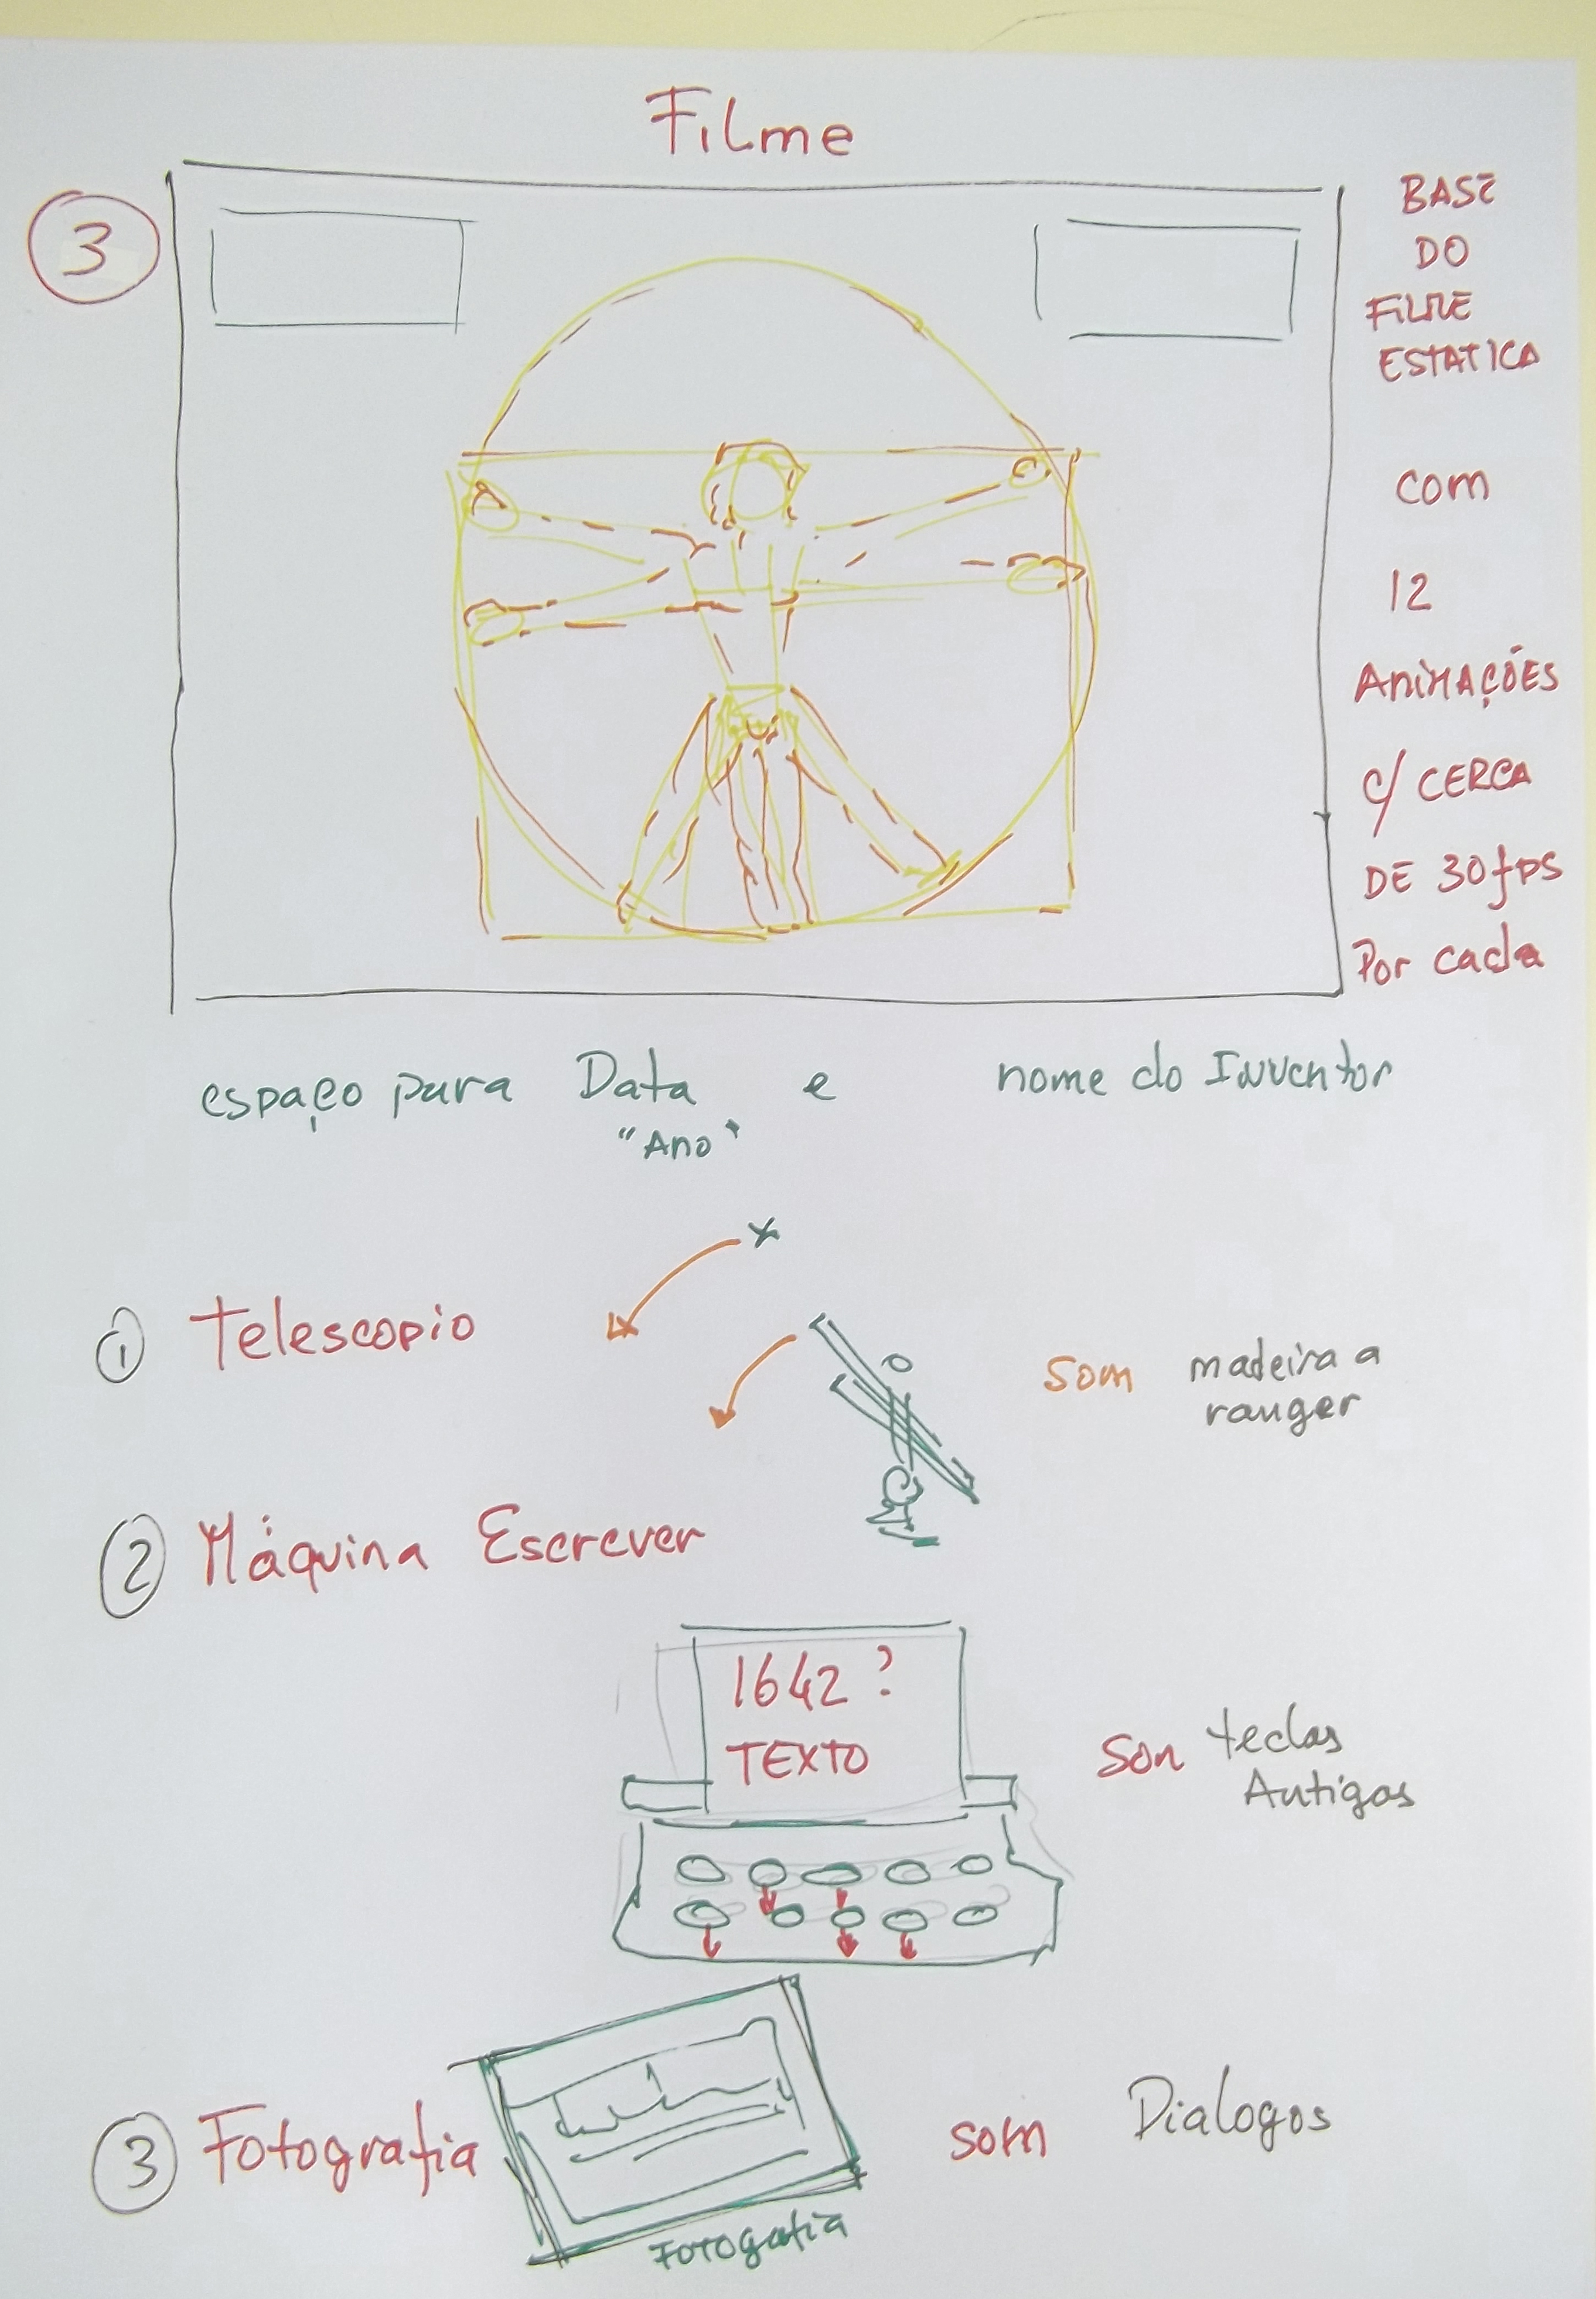 Filme
3
BASE
DO
FILME
ESTATICA
com
12
ANIMAÇÕES
c/ CERCA
DE 30 fps
Por cada
espaço para Data e nome do Inventor
"Ano"
1 Telescopio
som madeira a
ranger
2 Máquina Escrever
1642 ?
TEXTO
Son teclas
Antigas
3 Fotografia
som Dialogos
FOTOGAFIA